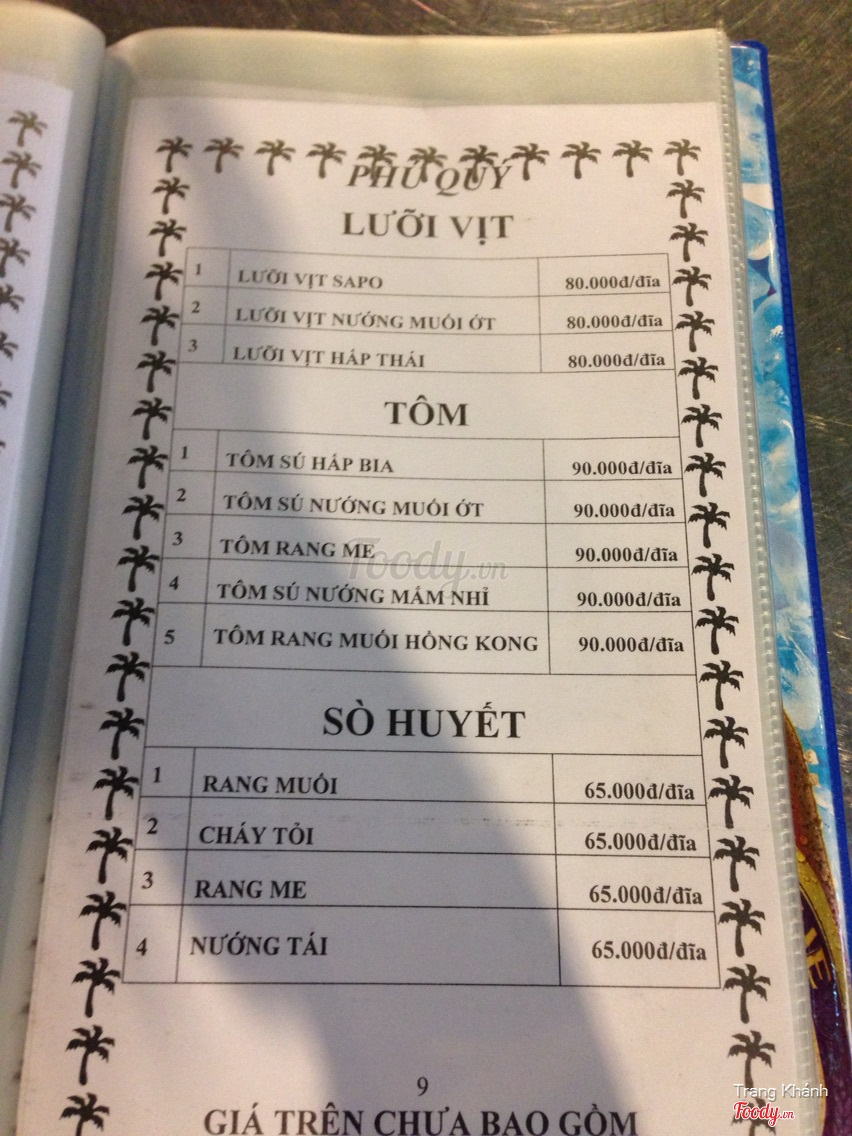 PHÚ QUÝ
LƯỠI VỊT
1 LƯỠI VỊT SAPO 80.000đ/đĩa
2 LƯỠI VỊT NƯỚNG MUỐI ỚT 80.000đ/đĩa
3 LƯỠI VỊT HẤP THÁI 80.000đ/đĩa
TÔM
1 TÔM SÚ HẤP BIA 90.000đ/đĩa
2 TÔM SÚ NƯỚNG MUỐI ỚT 90.000đ/đĩa
3 TÔM RANG ME 90.000đ/đĩa
Foody.vn
4 TÔM SÚ NƯỚNG MẮM NHỈ 90.000đ/đĩa
5 TÔM RANG MUỐI HỒNG KONG 90.000đ/đĩa
SÒ HUYẾT
1 RANG MUỐI 65.000đ/đĩa
2 CHÁY TỎI 65.000đ/đĩa
3 RANG ME 65.000đ/đĩa
4 NƯỚNG TÁI 65.000đ/đĩa
9
GIÁ TRÊN CHƯA BAO GỒM
Trang Khánh
Foody.vn